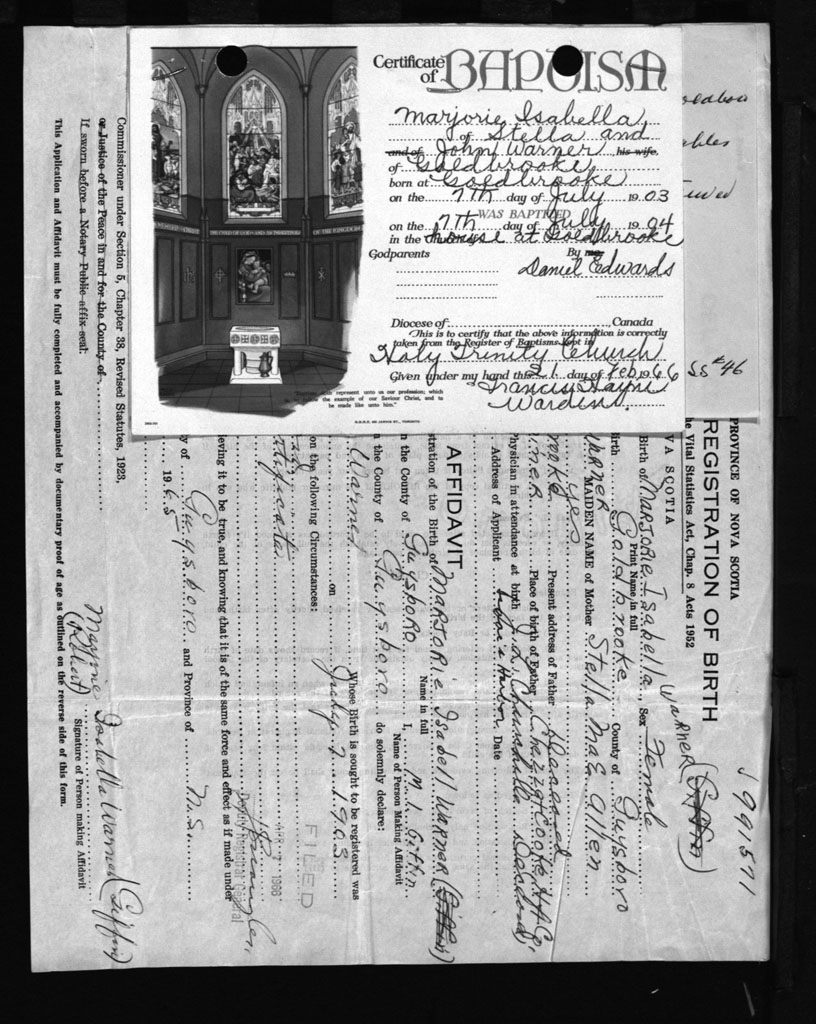 Certificate
of
BAPTISM
Marjorie Isabella,
of Stella and
and of John Warner, his wife,
of Goldbrooke,
born at Goldbrooke
on the 7th day of July 1903
WAS BAPTIZED
on the 7th day of July 1904
in the house at Goldbrooke
Godparents By me
Daniel Edwards
Diocese of Canada
This is to certify that the above information is correctly
taken from the Register of Baptisms kept in
Holy Trinity Church
Given under my hand this 21 day of Feb 1966
Francis Hayne
Warden.
represent unto us our profession; which
the example of our Saviour Christ, and to
be made like unto him."
SS #46
J 991571
PROVINCE OF NOVA SCOTIA
REGISTRATION OF BIRTH
he Vital Statistics Act, Chap. 8 Acts 1952
VA SCOTIA
Birth of Marjorie Isabella Warner (Giffin)
Print Name in full Sex Female
irth Goldbrooke County of Guysboro
Warner MAIDEN NAME of Mother Stella Mae Allen
Yes
Present address of Father Deceased
Place of birth of Father
Physician in attendance at birth
Address of Applicant Date
AFFIDAVIT
stration of the Birth of Marjorie Isabell Warner (Giffin)
Name in full
I,
Name of Person Making Affidavit
n the County of Guysboro
n the County of Guysboro do solemnly declare:
Warner
Whose Birth is sought to be registered was
on July 7 1903
on the following Circumstances:
FILED
APR 1966
Deputy Registrar General
ieving it to be true, and knowing that it is of the same force and effect as if made under
y of Guysboro and Province of N.S.
1965
Isabella Warner (Giffin)
Signature of Person making Affidavit
Commissioner under Section 5, Chapter 38, Revised Statutes, 1923,
or Justice of the Peace in and for the County of
If sworn before a Notary Public affix seal.
This Application and Affidavit must be fully completed and accompanied by documentary proof of age as outlined on the reverse side of this form.